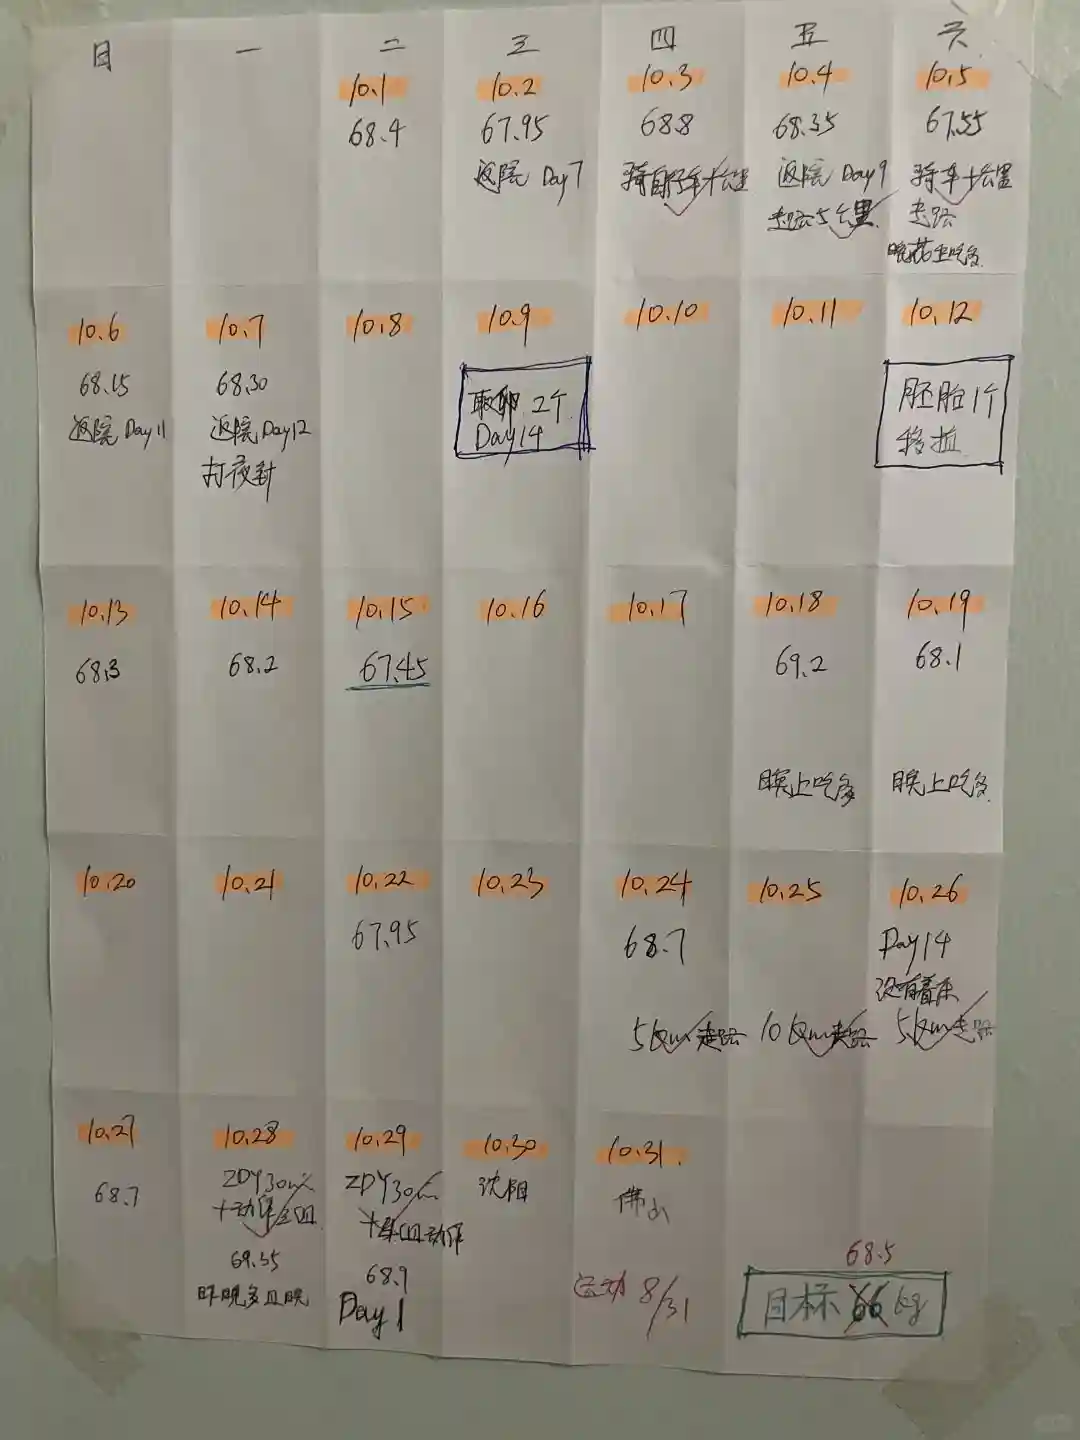 日 一 二 三 四 五 六
10.1 10.2 10.3 10.4 10.5
68.4 67.95 68.8 68.35 67.55
返院 Day7 骑自行车十公里 返院 Day9 骑车十公里
走路5公里 走路
晚上吃多
10.6 10.7 10.8 10.9 10.10 10.11 10.12
68.15 68.30 取卵 2个 胚胎1个
返院 Day11 返院 Day12 Day14 移植
打夜针
10.13 10.14 10.15 10.16 10.17 10.18 10.19
68.3 68.2 67.45 69.2 68.1
晚上吃多 晚上吃多
10.20 10.21 10.22 10.23 10.24 10.25 10.26
67.95 68.7 Day14
没有着床
5km走路 10km走路 5km走路
10.27 10.28 10.29 10.30 10.31
68.7 ZDY30 ZDY30 沈阳 佛山
十动作 十 动作
69.35 68.9 运动 8/31 68.5
昨晚多 晚 Day1 目标 66 kg